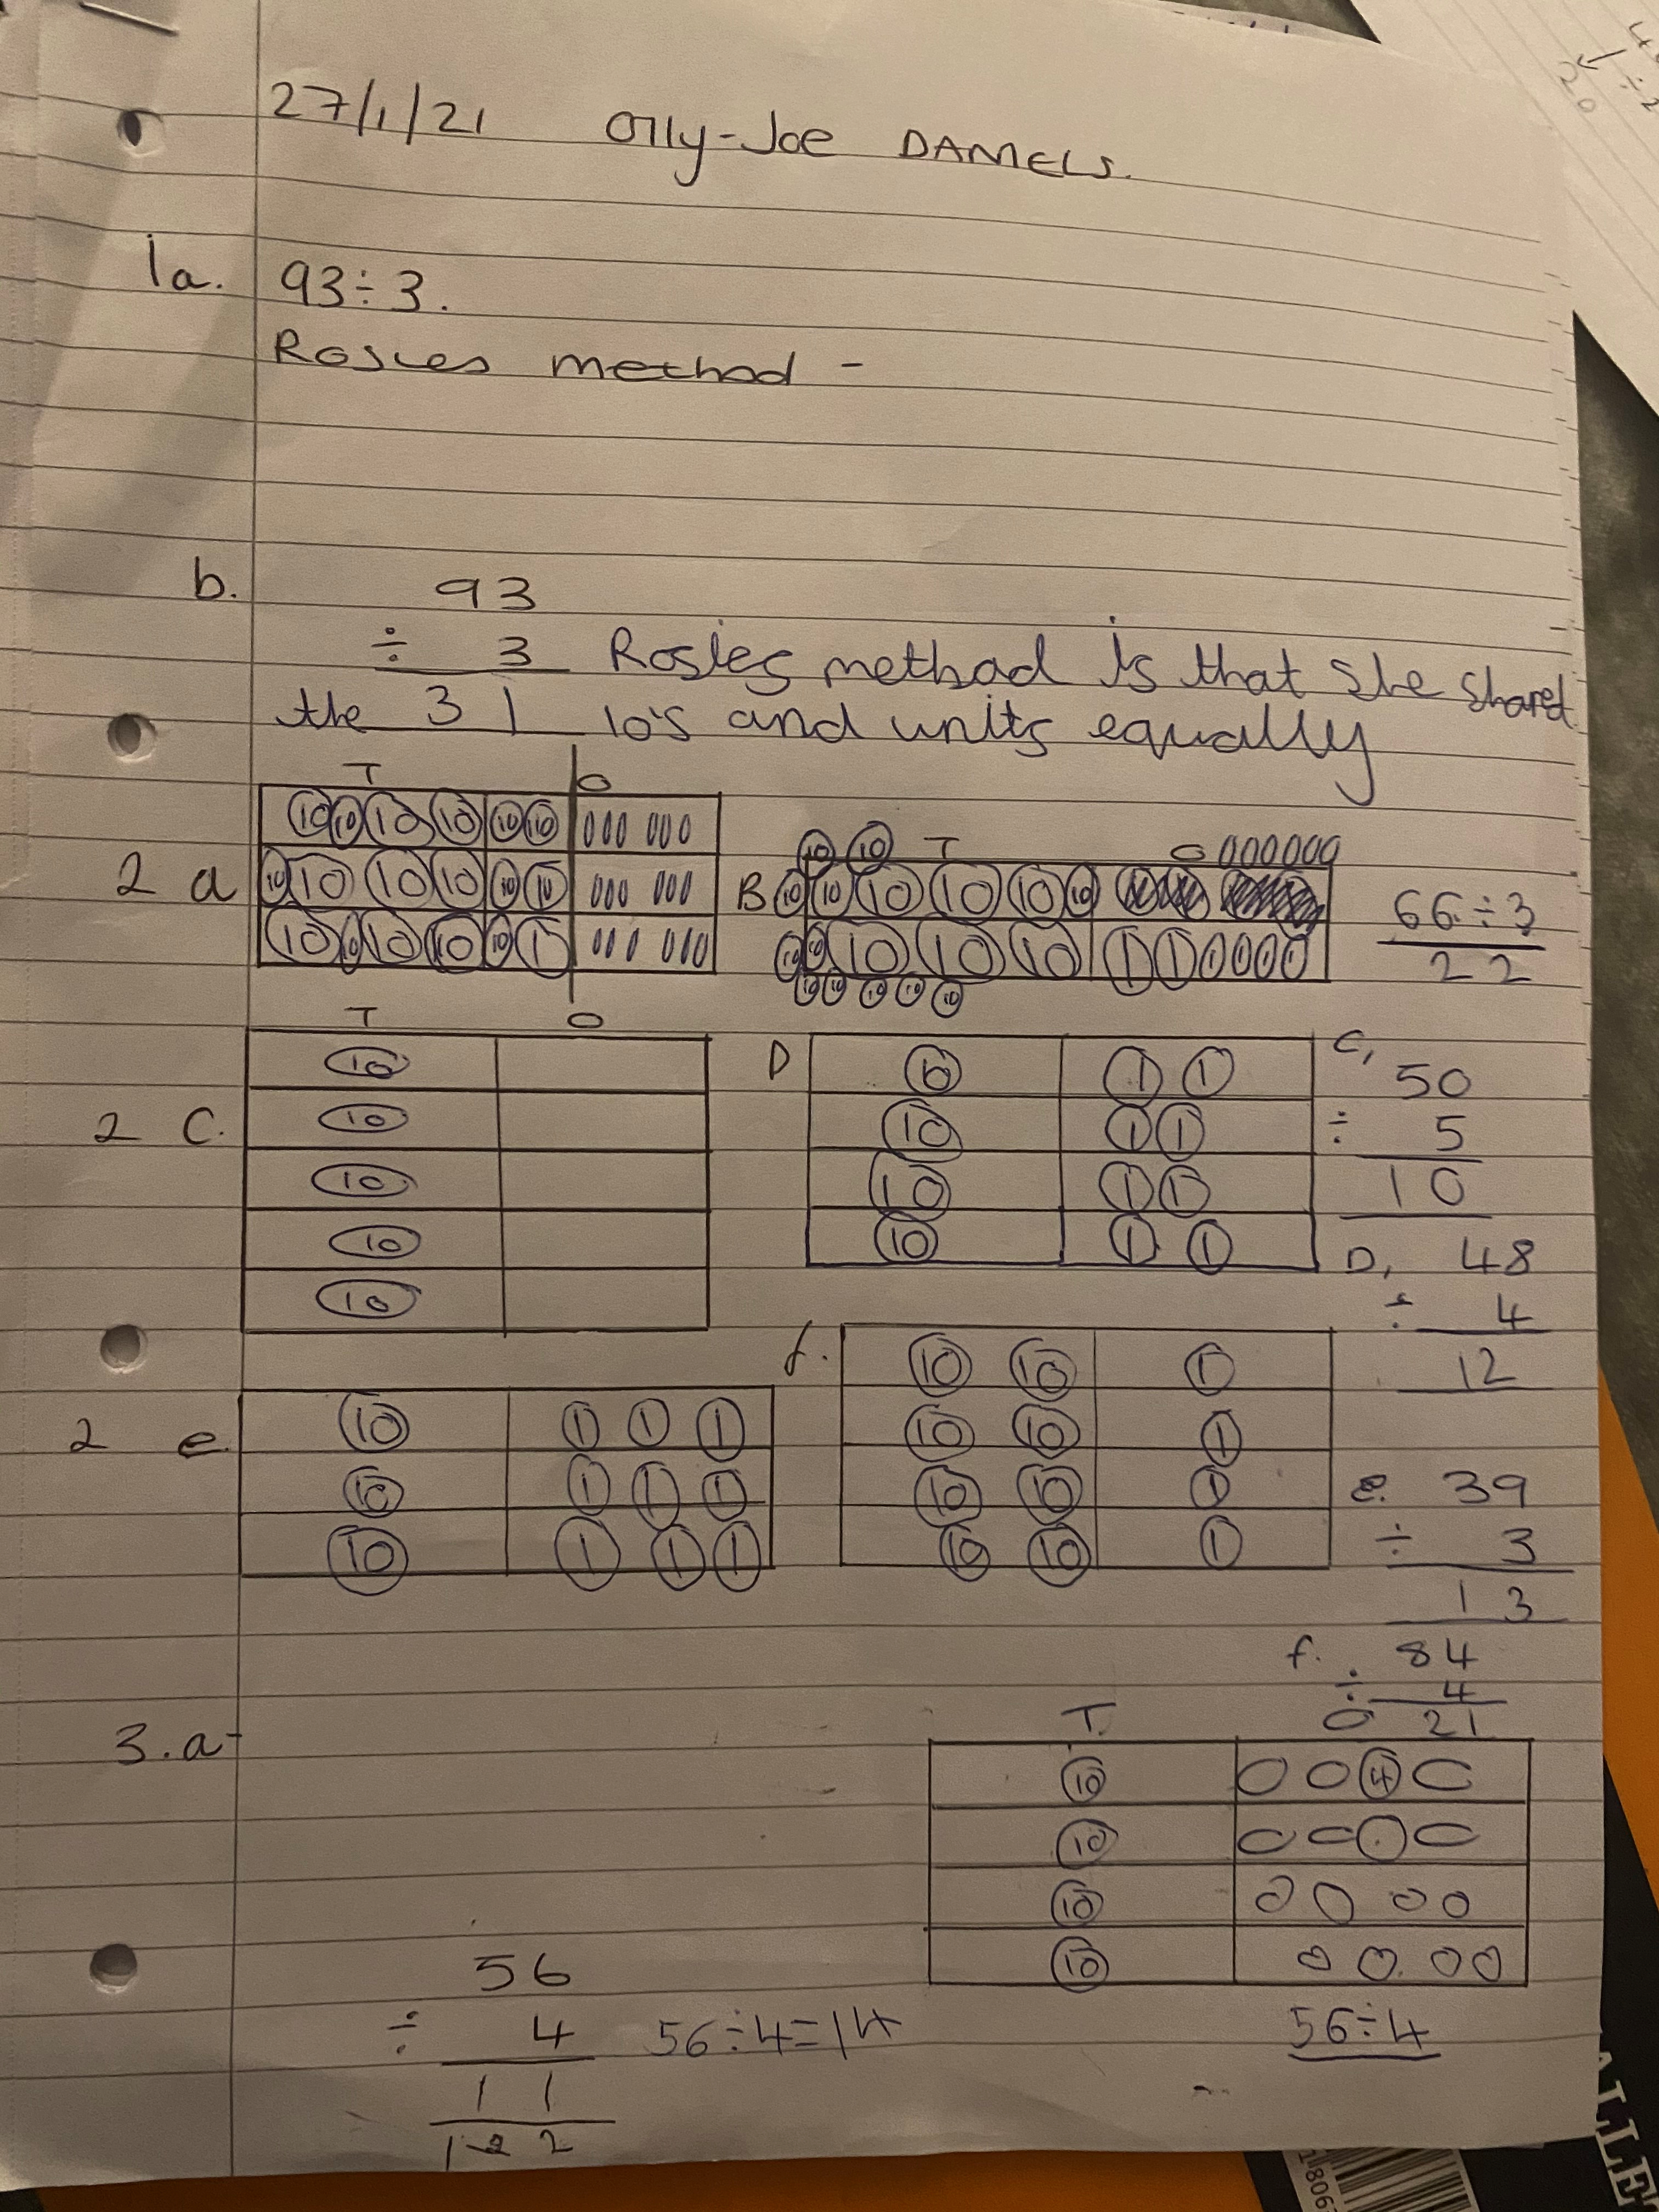 27/1/21 Olly-Joe DANIELS.
1a. 93÷3.
Rosies method -
b. 93
÷ 3 Rosies method is that she shared
the 31 10's and units equally
T O
2 a 10 10 10 10 10 10
10 10 10 10 10 10
10 10 10 10 10 1
B T O
10 10
10 10 10 10 10 10
10 10 10 10 10 1 1 1 1 1 1
10 10 10 10 10
66÷3
22
T O
2 C. 10
10
10
10
10
D 10 1 1
10 1 1
10 1 1
10 1 1
C, 50
÷ 5
10
D, 48
÷ 4
12
2 e 10 1 1 1
10 1 1 1
10 1 1 1
f. 10 10 1
10 10 1
10 10 1
10 10 1
e. 39
÷ 3
13
f. 84
÷ 4
21
3.a
T. O
10 4
10
10
10
56÷4
56
÷ 4 56÷4=14
1 1
2